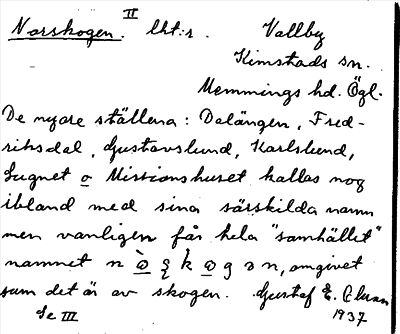 Norskogen. II lht:r. Vallby
Kimstads sn.
Memmings hd. Ögl.
De nyare ställena: Dalängen, Fred-
riksdal, Gustavslund, Karlslund,
Lugnet o Missionshuset kallas nog
ibland med sina särskilda namn
men vanligen får hela "samhället"
namnet n ò̲ ʂ k o̲ g ɔ n, omgivet
som det är av skogen. Gustaf E.
Se III 1937